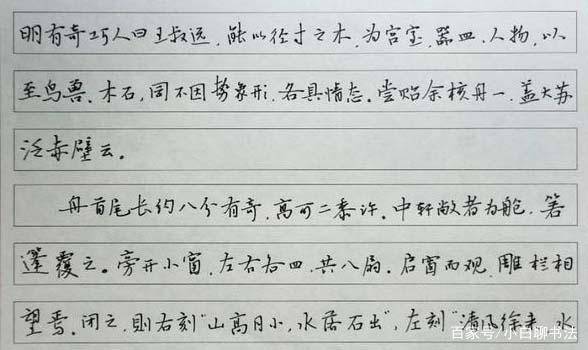 明有奇巧人曰王叔远,能以径寸之木,为宫室、器皿、人物,以
至鸟兽、木石,罔不因势象形,各具情态。尝贻余核舟一,盖大苏
泛赤壁云。
舟首尾长约八分有奇,高可二黍许。中轩敞者为舱,箬
篷覆之。旁开小窗,左右各四,共八扇。启窗而观,雕栏相
望焉。闭之,则右刻“山高月小,水落石出”,左刻“清风徐来,水
百家号/小白聊书法